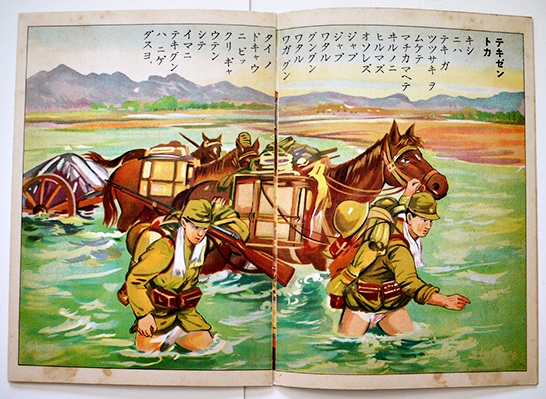 テキゼン
トカ
キシ
ニハ
テキ ガ
ツツサキ ヲ
ムケテ
マチカマヘテ
ヰルノニ
ヒルマズ
オソレズ
ジャブ
ジャブ
ワタル
グングン
ワタル
ワガ グン
タイ ノ
ドキャウ
ニ ビッ
クリ ギャ
ウテン
シテ
イマニ
テキグン
ハ ニゲ
ダスヨ。